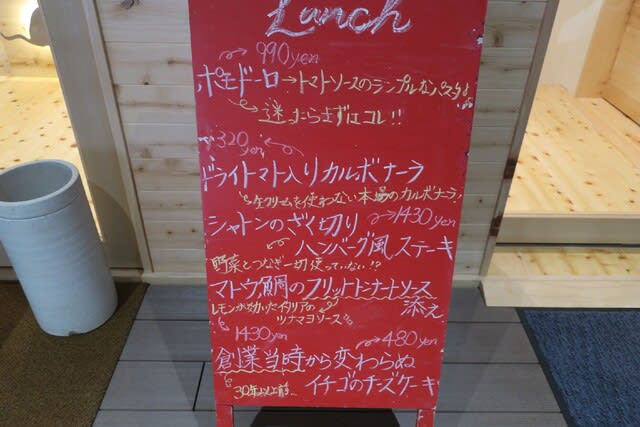 Lunch
990yen
ポモドーロ→トマトソースのシンプルなパスタ♪
迷ったらまずはコレ!!
1320yen
ドライトマト入りカルボナーラ
生クリームを使わない本場のカルボナーラ!
シャトンのざく切り 1430yen
ハンバーグ風ステーキ
野菜とつなぎ一切使っていない!?
マトウ鯛のフリットトンナートソース
添え
レモンが効いたイタリアの
ツナマヨソース
1430yen 480yen
創業当時から変わらぬ
30年以上前… イチゴのチーズケーキ